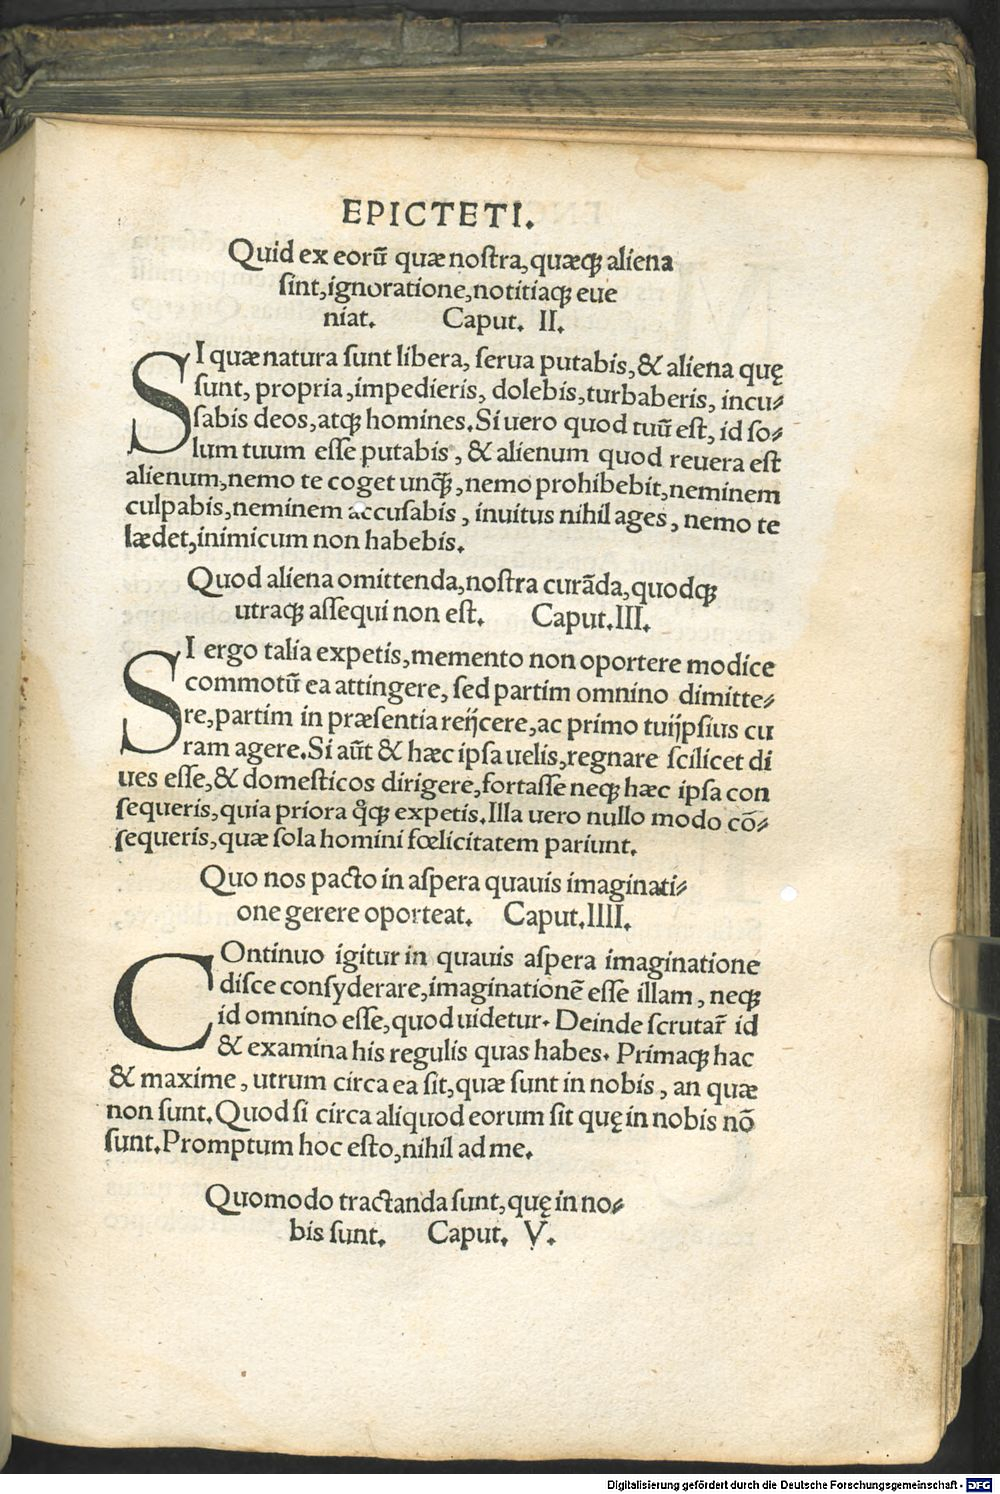 EPICTETI.
Quid ex eorū quæ nostra, quæq; aliena
sint, ignoratione, notitiaq; eue
niat. Caput. II.
SI quæ natura sunt libera, serua putabis, & aliena quę
sunt, propria, impedieris, dolebis, turbaberis, incu-
sabis deos, atq; homines. Si uero quod tuū est, id so-
lum tuum esse putabis, & alienum quod reuera est
alienum, nemo te coget unq̃, nemo prohibebit, neminem
culpabis, neminem accusabis, inuitus nihil ages, nemo te
lædet, inimicum non habebis.
Quod aliena omittenda, nostra curāda, quodq;
utraq; assequi non est. Caput. III.
SI ergo talia expetis, memento non oportere modice
commotū ea attingere, sed partim omnino dimitte-
re, partim in præsentia reijcere, ac primo tuijpsius cu
ram agere. Si aūt & hæc ipsa uelis, regnare scilicet di
ues esse, & domesticos dirigere, fortasse neq; hæc ipsa con
sequeris, quia priora qͦq; expetis. Illa uero nullo modo cō-
sequeris, quæ sola homini fœlicitatem pariunt.
Quo nos pacto in aspera quauis imaginati-
one gerere oporteat. Caput. IIII.
COntinuo igitur in quauis aspera imaginatione
disce consyderare, imaginationē esse illam, neq;
id omnino esse, quod uidetur. Deinde scrutar̃ id
& examina his regulis quas habes. Primaq; hac
& maxime, utrum circa ea sit, quæ sunt in nobis, an quæ
non sunt. Quod si circa aliquod eorum sit quę in nobis nō
sunt. Promptum hoc esto, nihil ad me.
Quomodo tractanda sunt, quę in no-
bis sunt. Caput. V.
Digitalisierung gefördert durch die Deutsche Forschungsgemeinschaft - DFG